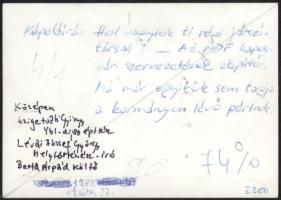 Képaláírás: Hol vagytok ti régi játszó-
társak? – Az MDF kapos-
vári szervezetének alapítói.
Ma már egyikük sem tagja
a kormányon lévő pártnak.
4/1
Középen
Szigetvári György
Ybl-díjas építész
Lévai József György
helytörténész-író
Bertók Árpád költő
1989
74%